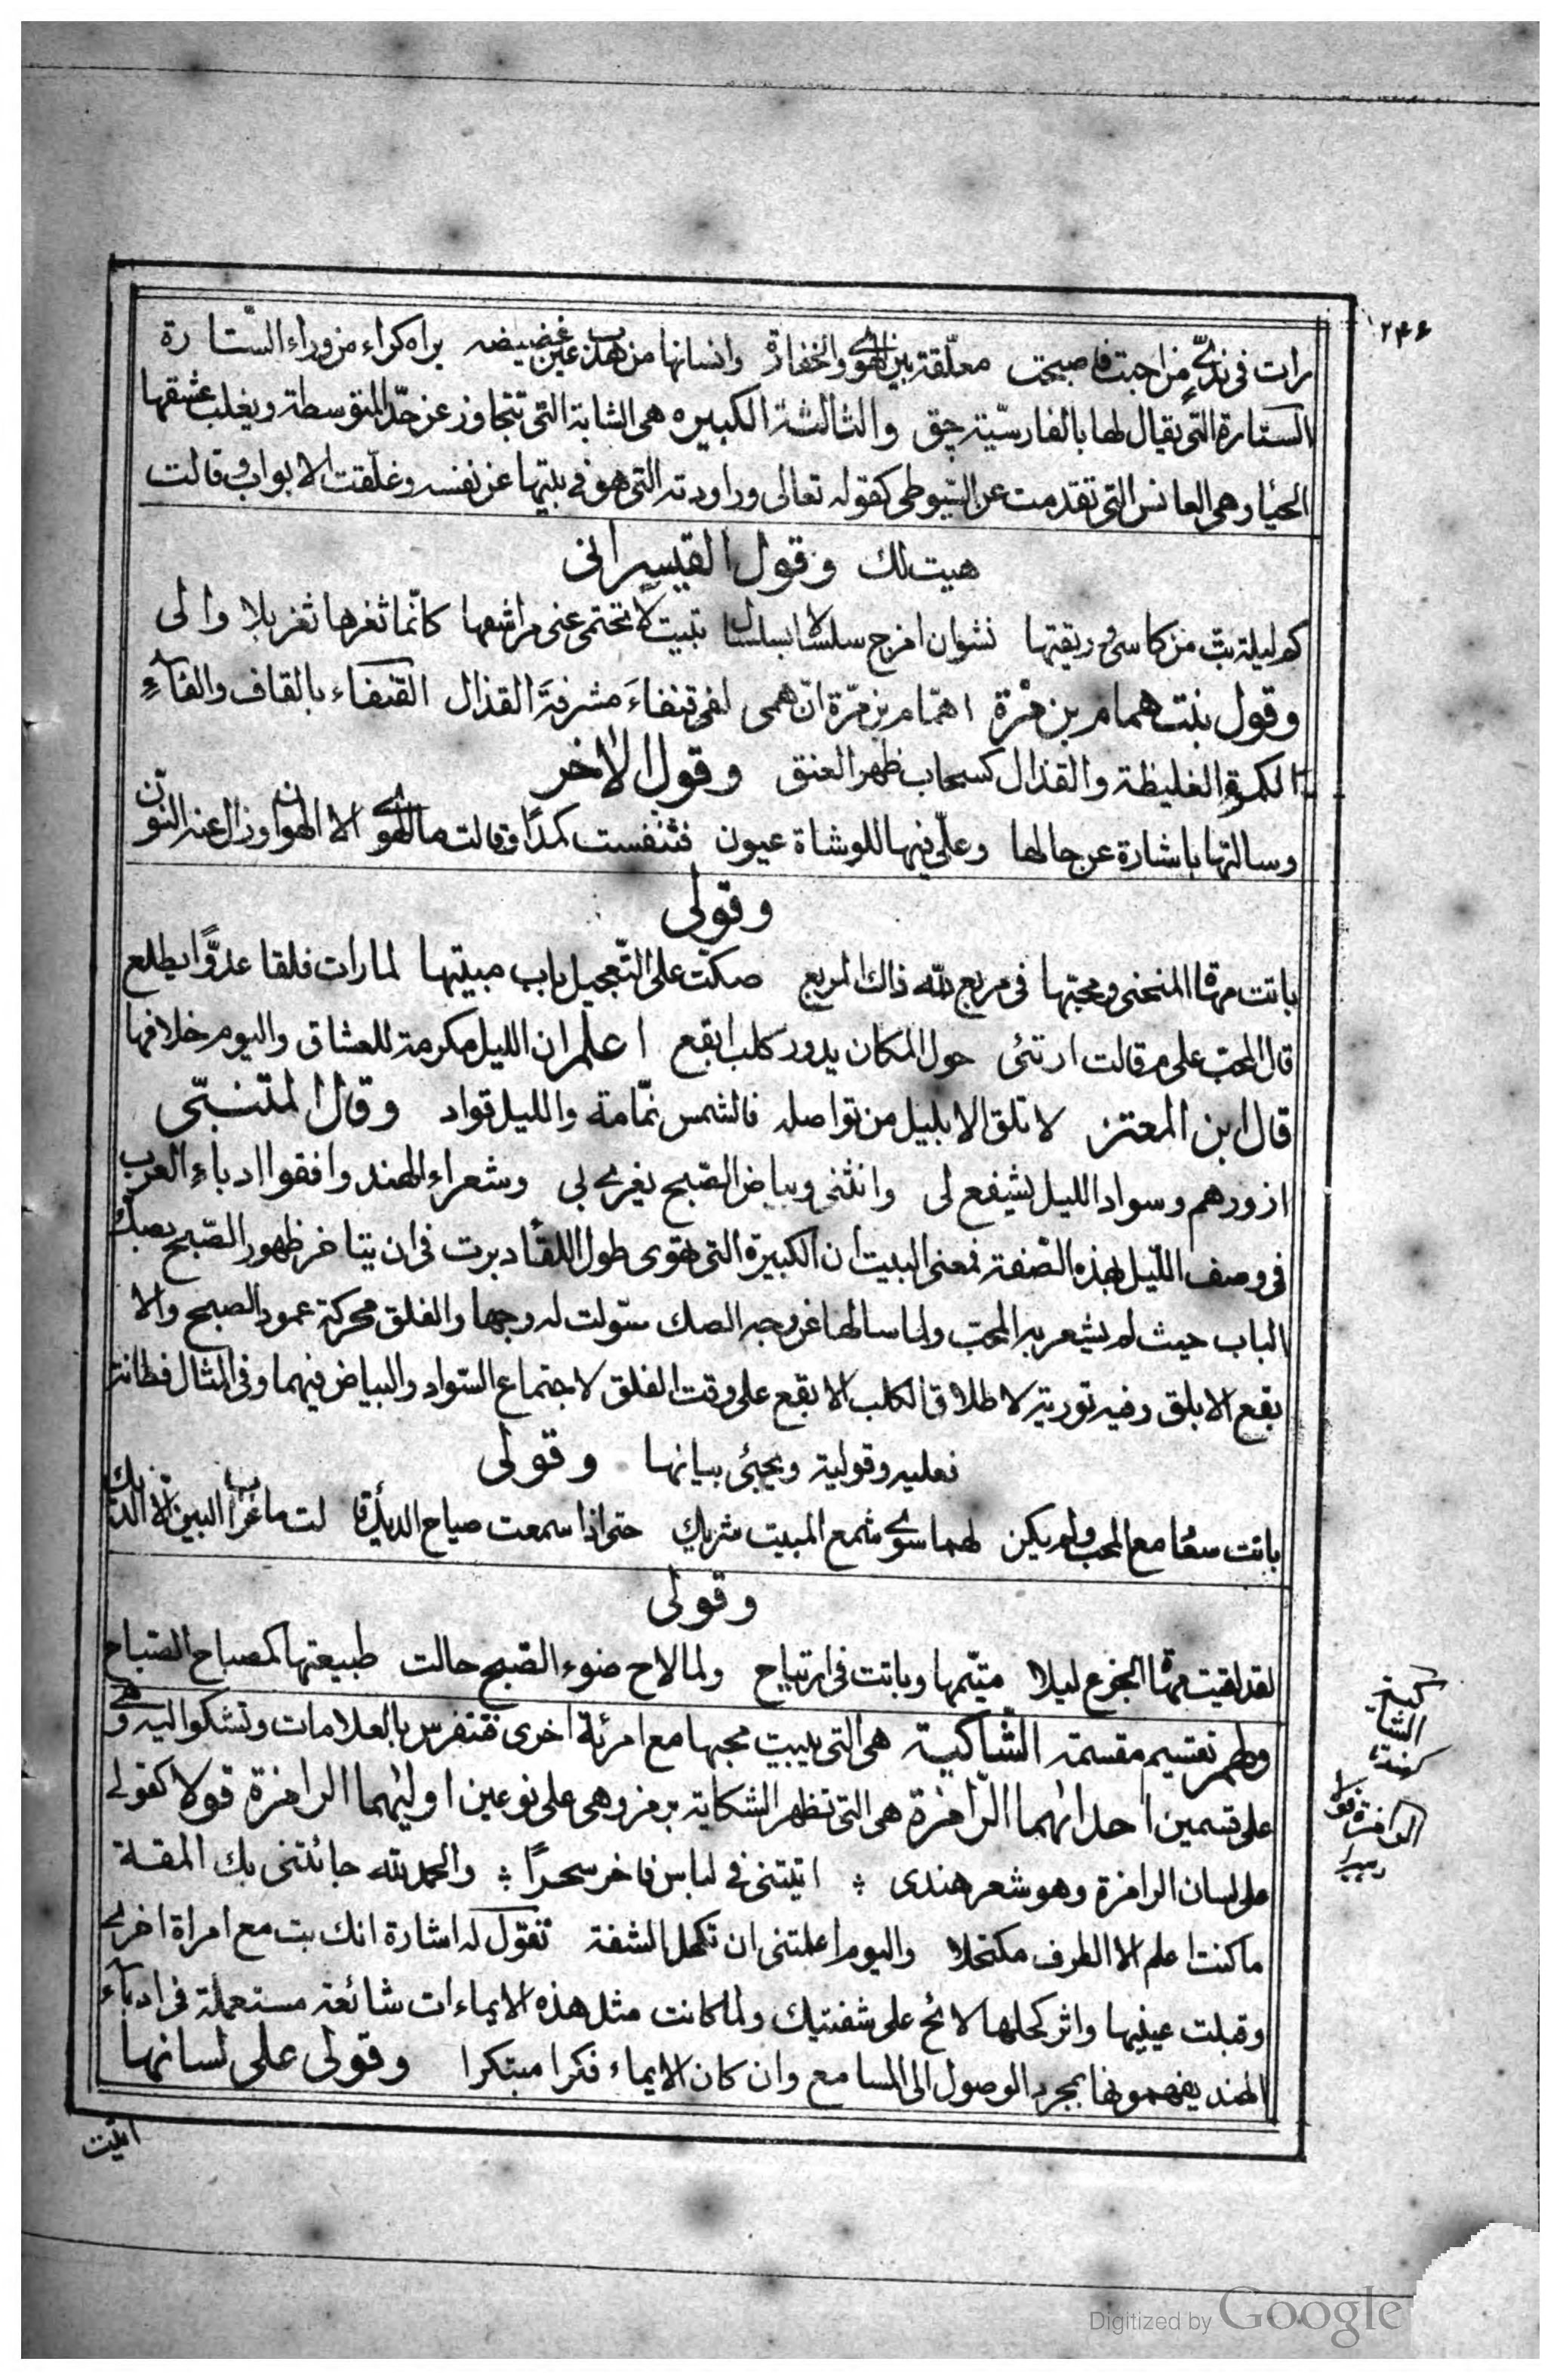 ۲۴۶
رات فی ندیّ من احبت فاصبحت معلّقة بین الهوی والخفارة وانسانها من هدب عین غضیضه یراه کراء من وراء السّتارة
الستارة التی یقال لها بالفارسیّة چق والثالثة الکبیره هی الشابة التی تتجاوز عن حدّ المتوسطة ویغلب عشقها
الحیاء وهی العانس التی تقدمت عن السّیوطی کقوله تعالی وراودته التی هو فی بیتها عن نفسه وغلّقت الابواب وقالت
هیت لك وقول القیسرانی
کم لیلة بتّ من کاسی وریقتها نشوان امزج سلسالا بسلسال تبیت لا تحتمی عنی مراشفها کانّما ثغرها ثغر بلا والی
وقول بنت همام بن مرة اهمّام بن مرّة انّ همی لفی قنفاءَ مشرفةَ القذال القنفاء بالقاف والفآءِ
الکمرة الغلیظة والقذال کسحاب ظهر العنق وقول الاخر
وسالتها باشارة عن حالها وعلیّ فیها للوشاة عیون فتنفست کمدًا وقالت ما الهوی الا الهوان وزال عنه النّون
وقولی
باتت مهاة المنحنی ومحبّها فی مربع لله ذاك المربع صکّت علی التّعجیل باب مبیتها لما رات فلقا عدوًّا یطلع
قال المحبّ علی م قالت ارتئی حول المکان یدور کلب ابقع اعلم ان اللیل مکرمة للعشاق والیوم خلافها
قال ابن المعتز لا تلق الا بلیل من تواصله فالشمس نمّامة واللیل قواد وقال المتنبّی
ازورهم وسواد اللیل یشفع لی وانثنی وبیاض الصّبح یغری بی وشعراء الهند وافقوا ادباء العرب
فی وصف اللّیل بهذه الصّفة فمعنی البیت ان الکبیرة التی تهوی طول اللقاء دبرت فی ان یتاخر ظهور الصّبح بصكّ
الباب حیث لم یشعر به المحبّ ولما سالها عن وجه الصك سوّلت له وجها والفلق محرکة عمود الصبح والا
بقع الابلق وفیه توریة لاطلاق الکلب الابقع علی وقت الفلق لاجتماع السّواد والبیاض فیهما وفی المثال فطانة
فعلیه وقولیة ویجئی بیانها وقولی
باتت سعاد مع المحب ولم یکن لهما سوی شمع المبیت شریك حتی اذا سمعت صیاح الدیك قالت ما غراب البین الا الدّیك
وقولی
لقد لقیت مهاة الجزع لیلا متیّمها وباتت فی ارتیاح ولما لاح ضوء الصّبح حالت طبیعتها کمصباح الصّباح
ولهم تقسیم مقسمة الشّاکیة هی التی یبیت محبها مع امرئة اخری فتتفرس بالعلامات وتشکوالیه وهی
علی قسمین احدٰهما الرّامزة هی التی تظهر الشکایة برمز وهی علی نوعین اولیٰهما الرامزة قولا کقولی
علی لسان الرامزة وهو شعر هندی اتیتنی فی لباس فاخر سحرًا والحمد لله جائتنی بك المقة
ما کنت اعلم الا الطرف مکتحلا والیوم اعلمتنی ان تکحل الشفة تقول له اشارة انك بت مع امراة اخری
وقبلت عینیها واثر کحلها لائح علی شفتیك ولما کانت مثل هذه الایماءات شائعة مستعملة فی ادبآء
الهند یفهمونها بمجرد الوصول الی المسامع وان کان الایماء فکرا مبتکرا وقولی علی لسانها
اتیت
الرامزة قولا
Digitized by Google